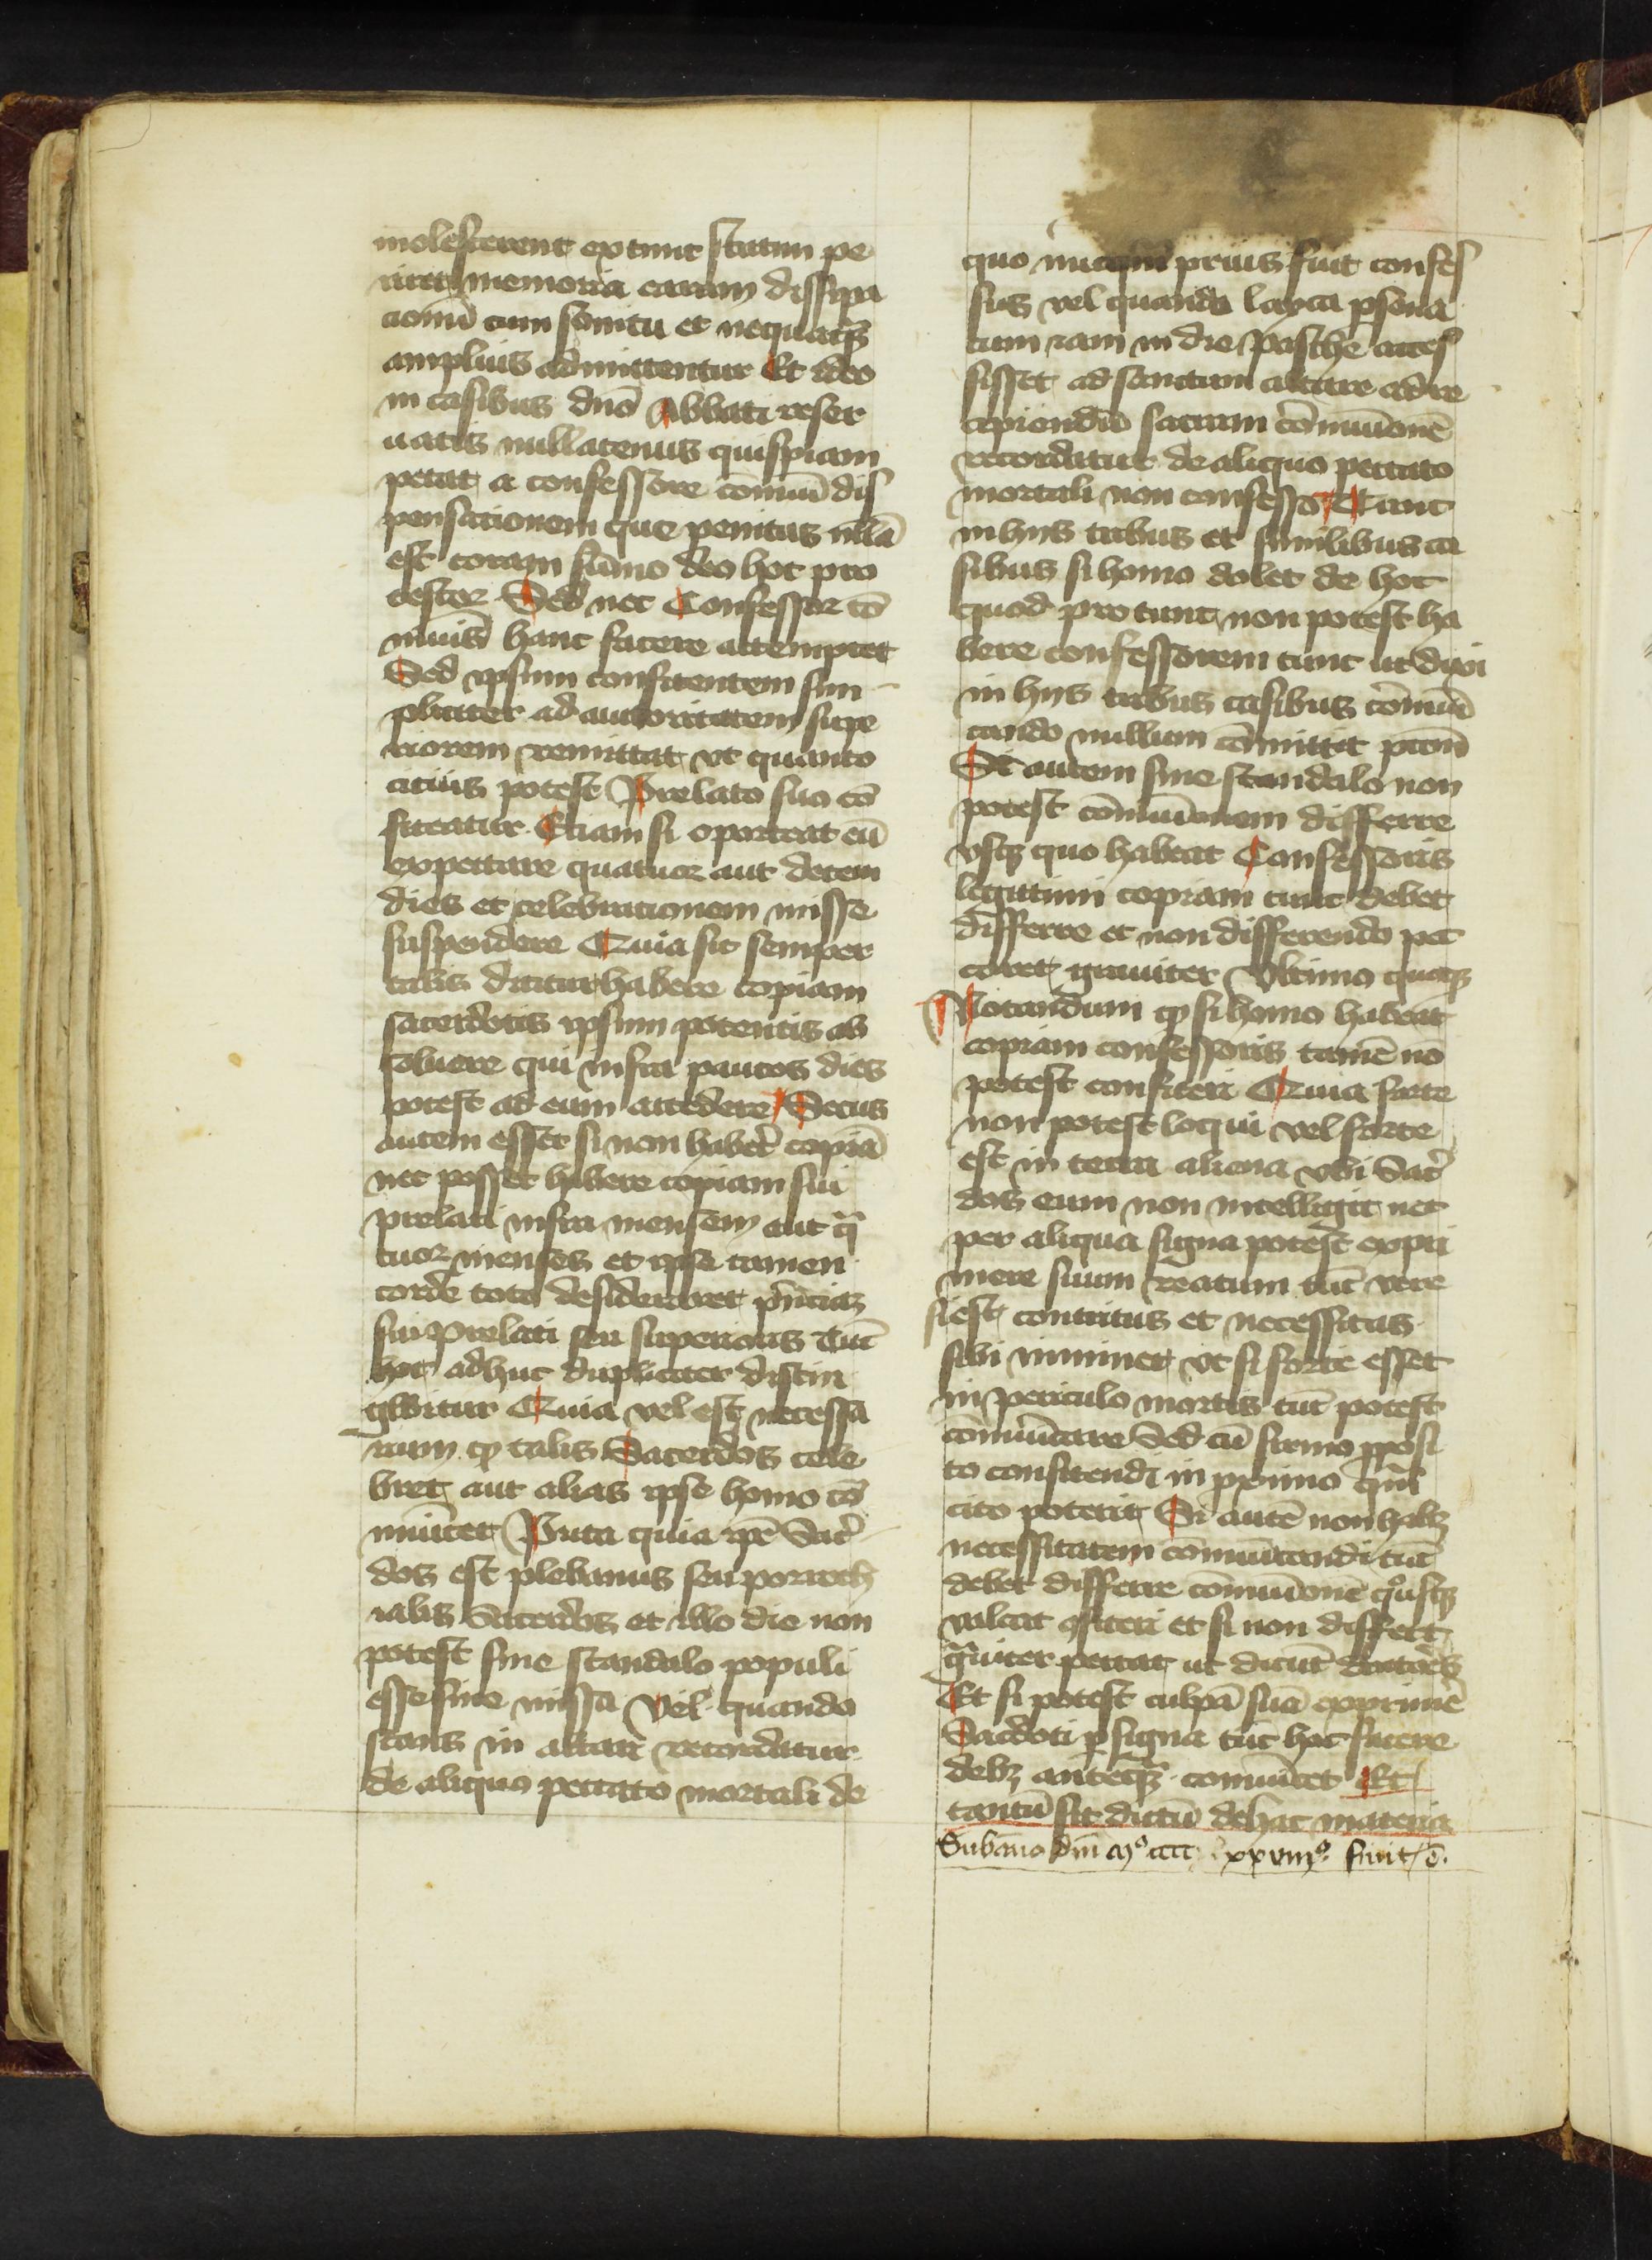 molesterent ex tunc statim pe
riret memoria earum dissipa
cionū cum sonitu et nequaqꝫ
amplius admittentur Et ideo
in casibus dn̄o Abbati reser
uatis nullatenus quispiam
petat a confessore com̄uni dis
pensationem que penitus nulla
est coram sūmo deo hoc pro
testor Sed nec Confessor cō
munis hanc facere attemptet
Sed ipsum confitentem sim
pliciter ad auctoritatem supe
riorem remittat vt quanto
citius potest Prelato suo cō
fiteatur Etiam si oporteat eū
expectare quatuor aut decem
dies et celebrationem misse
suspendere Quia sic semper
talis dicitur habere copiam
sacerdotis ipsum potentis ab
soluere qui infra paucos dies
potest ad eum accedere Secus
autem esset si non haberet copiā
nec posset habere copiam sui
prelati infra mensem aut qͣ
tuor menses et ipse tamen
corde toto desideraret pn̄ciaꝫ
sui Prelati seu superioris Tūc
hoc adhuc dupliciter distin
gwitur Quia vel est necessa
rium qꝫ talis Sacerdos cele
bret aut alias ipse homo cō
municet Puta quia ip̄e Sacer
dos est plebanus seu parroch
ialis Sacerdos et illo die non
potest sine scandalo populi
esse sine missa Vel quando
stans in altari recordatur
de aliquo peccato mortali de
quo nunquam prius fuit confes
sus vel quando layca psona
cum iam in die pasche acces
sisset ad sanctum altare ad re
cipiendū sacram cōmunionē
recordatur de aliquo peccato
mortali non confesso Tunc
in hys talibus et similibus ca
sibus si homo dolet de hoc
quod pro tunc non potest ha
bere confessorem tunc ut dixi
in hys talibus casibus cōmuni
cando nullum cōmittit pctm̄
Si autem sine scandalo non
potest cōmunionem differre
vsqꝫ quo habeat Confessoris
legittimi copiam tunc debet
differre et non differendo pec
caret grauiter Vltimo quoqꝫ
Notandum qꝫ si homo habeat
copiam confessoris tamē nō
potest confiteri Quia forte
non potest loqui vel forte
est in terra aliena vbi Sacer
dos eum non intelligit nec
per aliqua signa potest expri
mere suum reatum tūc vere
si est contritus et necessitas
sibi iminet vt si forte esset
in periculo mortis tūc potest
cōmunicare Sed cū firmo pposi
to confitendi in primo qm̄
cito poterit Si autē non habꝫ
necessitatem cōmunicandi tūc
debet differre cōmunionē quousqꝫ
valeat confiteri et si non differt
grauiter peccat ut dicūt doctores
Et si potest culpā suā exprimē
Sacerdoti p signa tūc hoc facere
debꝫ anteqꝫ comunicet Et
tantū sit dictū de hac materia
Sub ānō dn̄i Mᵒ cccc xxviijᵒ finit ē.